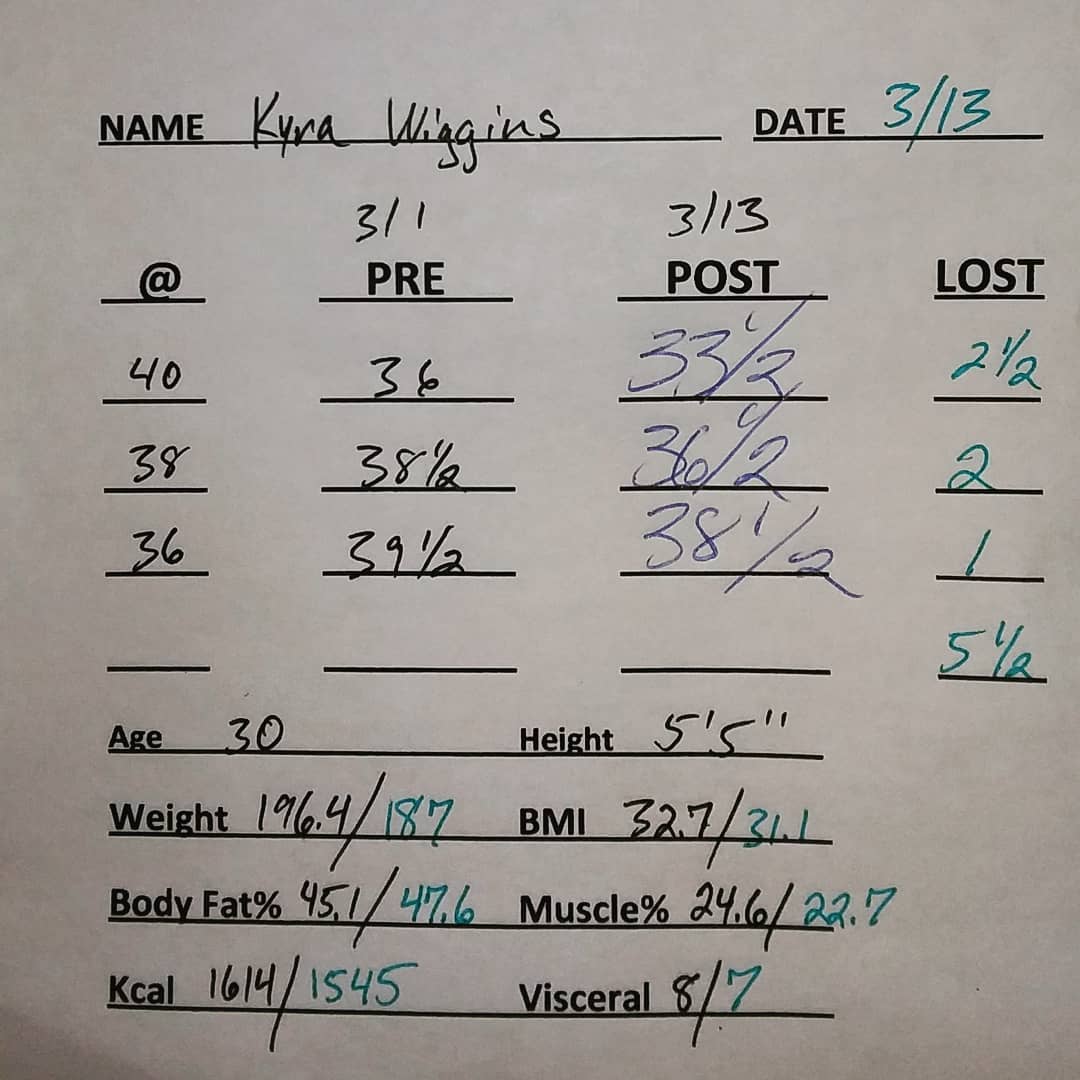 NAME Kyra Wiggins DATE 3/13
3/1 3/13
@ PRE POST LOST
40 36 33 1/2 2 1/2
38 38 1/2 36 1/2 2
36 39 1/2 38 1/2 1
5 1/2
Age 30 Height 5'5"
Weight 196.4/187 BMI 32.7/31.1
Body Fat% 45.1/47.6 Muscle% 24.6/22.7
Kcal 1614/1545 Visceral 8/7